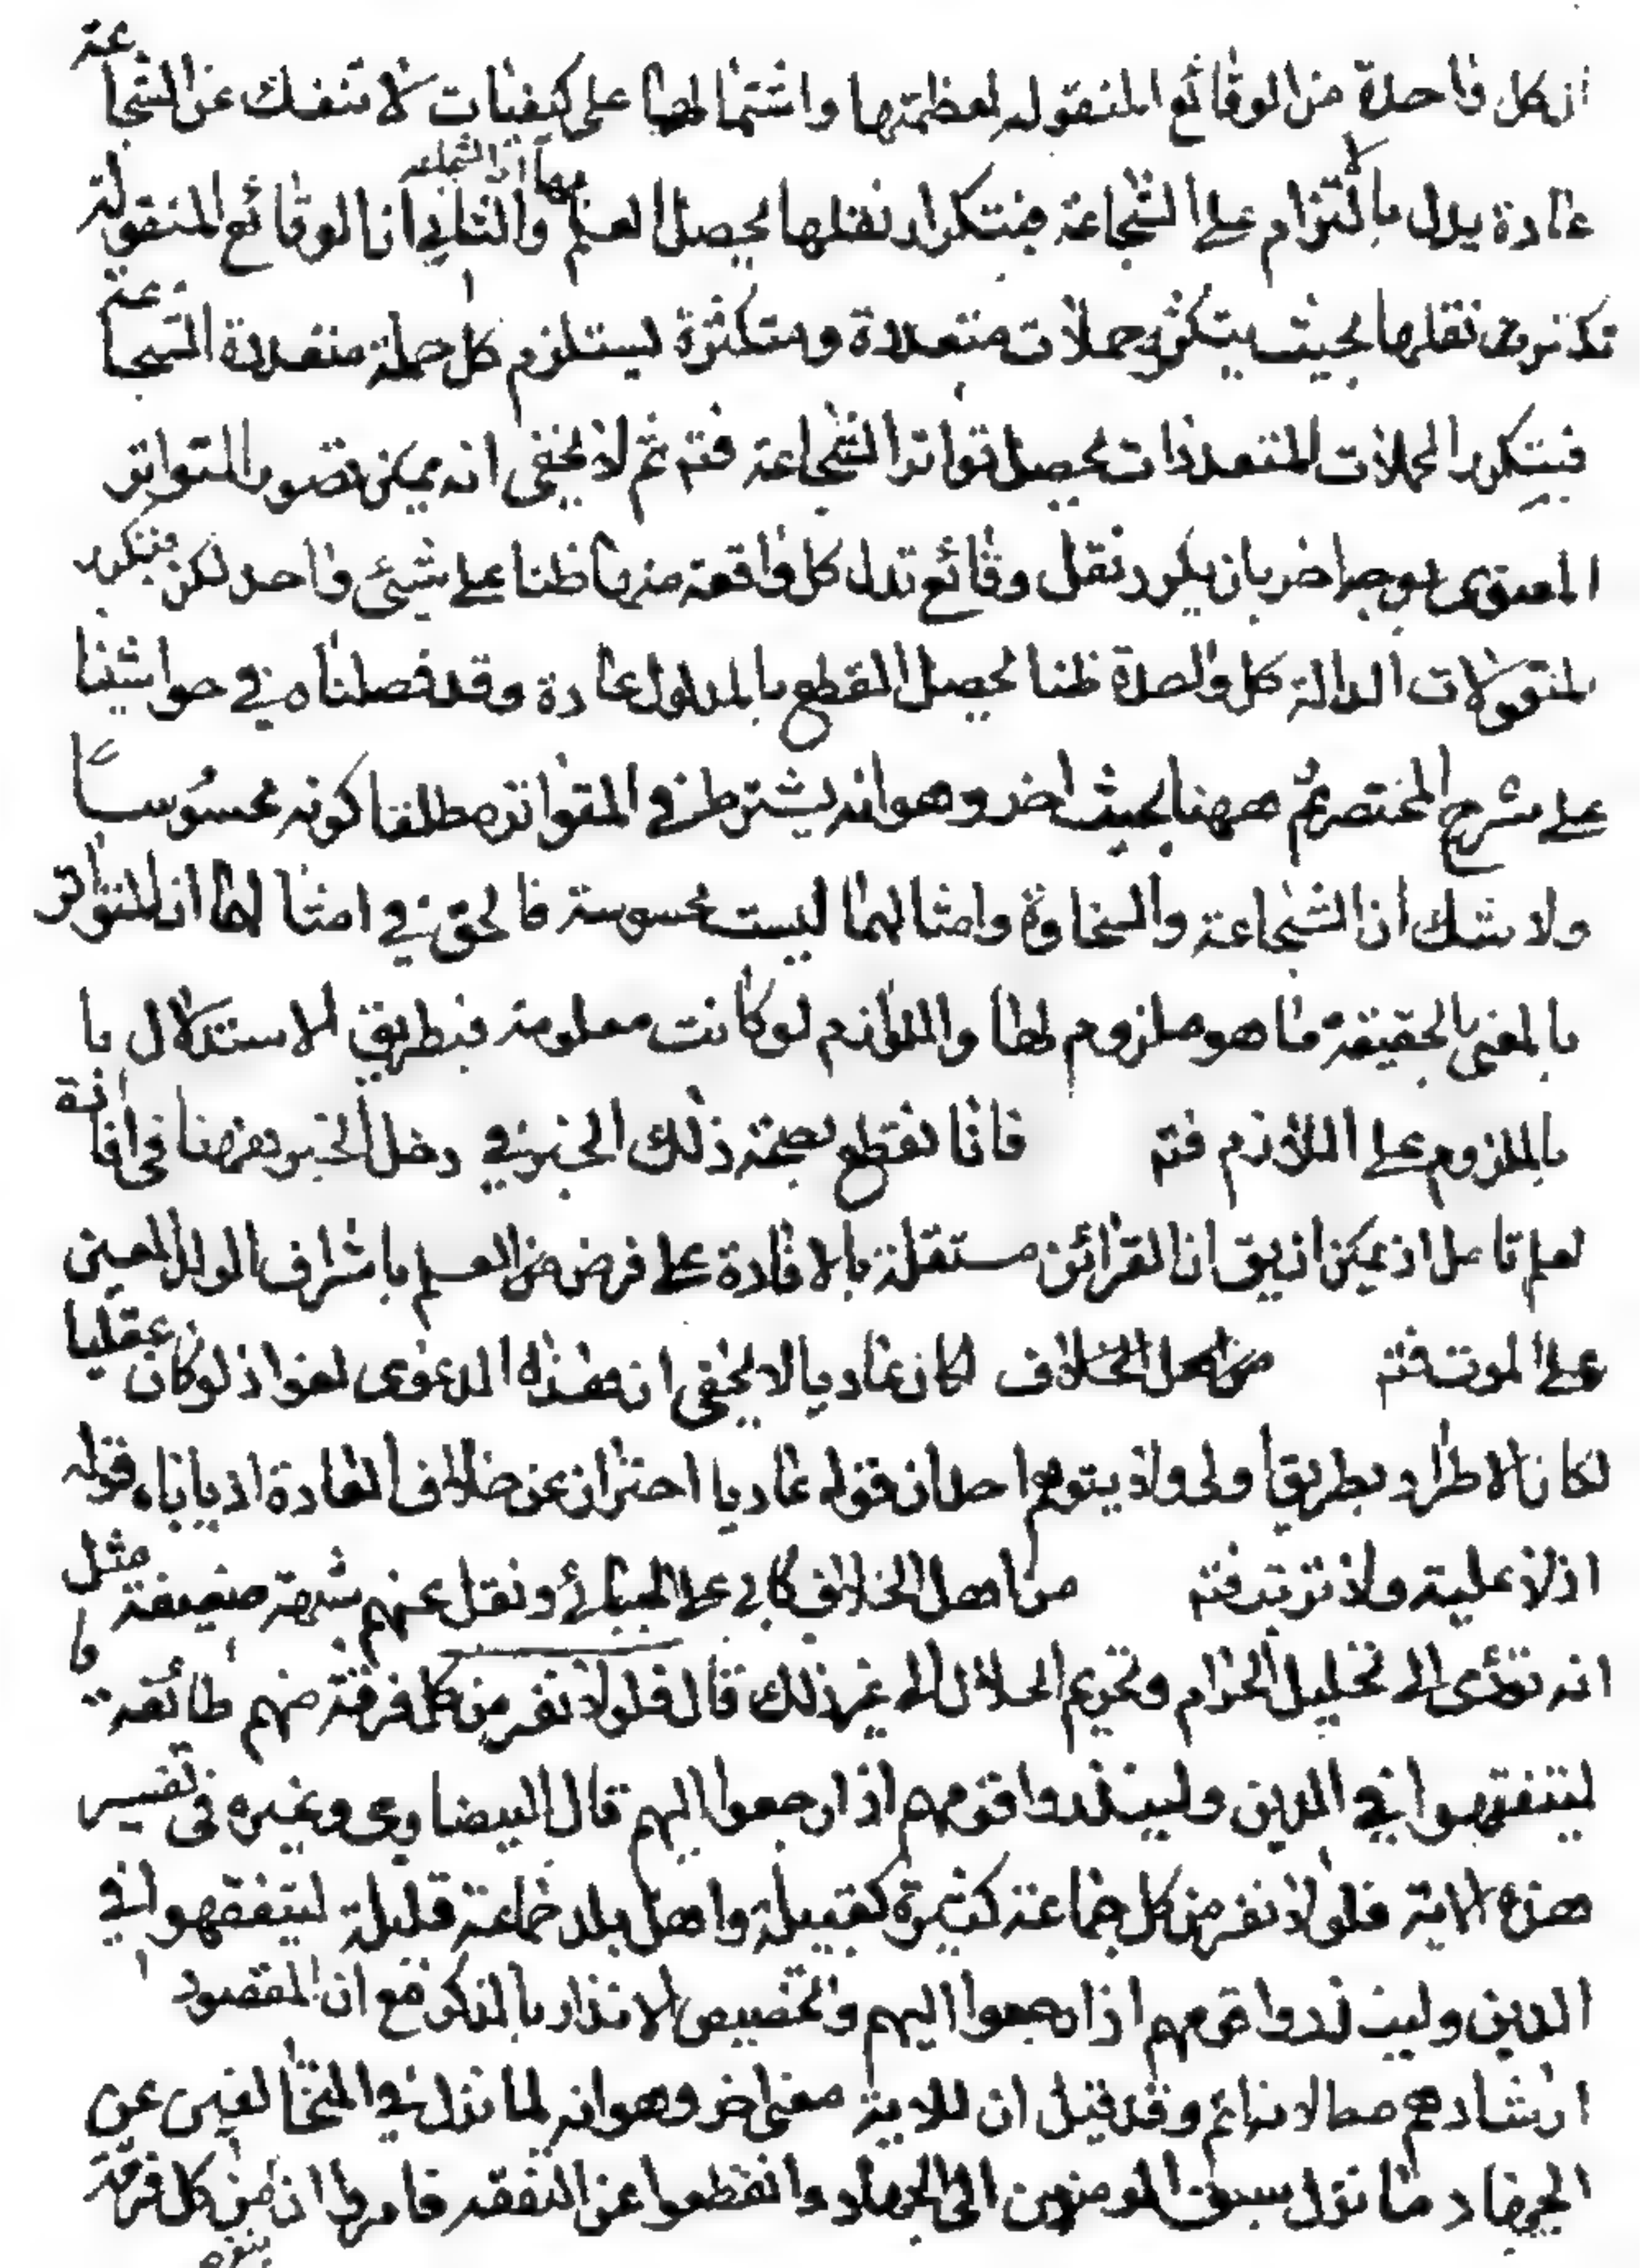 ان كل واحدة من الوقائع المنقوله لعظمتها واشتمالها على كيفيات لا تنفك عن الشجاعة
عادة يدل بالالتزام على الشجاعة فبتكرار نقلها يحصل العلم بها اى الشجاعة والثانى ان الوقائع المنقولة
نقلها بحيث يتكثر حملات متعددة ومتكثرة ليستلزم كل حملة منفردة الشجاعة
فبتكرر الحملات المتعددات يحصل تواتر الشجاعة فتم ثم لا يخفى انه يمكن تصوير المتواتر
المعنوى بوجه اخر بان يكرر نقل وقائع تدل كل واقعة منها ظنا على شيئ واحد لكن بتكرر
المنقولات الدالة كل واحدة ظنا يحصل القطع بالمدلول عادة وقد فصلناه في حواشينا
على شرح المختصر ثم ههنا بحيث اخر وهو انه يشترط في المتواتر مطلقا كونه محسوسا
ولا شك ان الشجاعة والسخاوة وامثالهما ليست محسوسة فالحق في امثالها ان المتواتر
بالمعنى الحقيقة ما هو ملزوم لها واللوازم لو كانت معلومة فبطريق الاستدلال با
بالملزوم على اللازم فتم فانا نقطع بصحة ذلك الخبر في دخل الخبر ههنا فى افادة
العلم تامل اذ يمكن ان يق ان القرائن مستقلة بالافادة على فرض من العلم باشراف الولد المعين
على الموت فتم من اهل الخلاف لكان عاديا لا يخفى ان هذه الدعوى لغو اذ لو كان عقليا
لكان الاطراد بطريق اولى ولا يتوهم احد ان قوله عاديا احتراز عن خلاف العادة اذ ياباه قوله
اذ لا علية ولا ترتب فتم من اهل الخلاف كابى على الجبائى ونقل عنهم شبهة ضعيفة مثل
انه تؤدى الى تحليل الحرام وتحريم الحلال الى غير ذلك قال فلولا نفر من كل فرقة منهم طائفة
ليتفقهوا في الدين ولينذروا قومهم اذا رجعوا اليهم قال البيضاوى وغيره فى تفسير
هذه الاية فلولا نفر من كل جماعة كثيرة كقبيلة واهل بلد جماعة قليلة ليتفقهوا في
الدين ولينذروا قومهم اذا رجعوا اليهم وتخصيص الانذار بالذكر مع ان المقصود
ارشادهم وقد قيل ان للاية معنى اخر وهو انه لما نزل في المتخالفين عن
الجهاد ما نزل سبق المومنون الى الجهاد وانقطعوا عن التفقه فامروا ان من كل فرقة